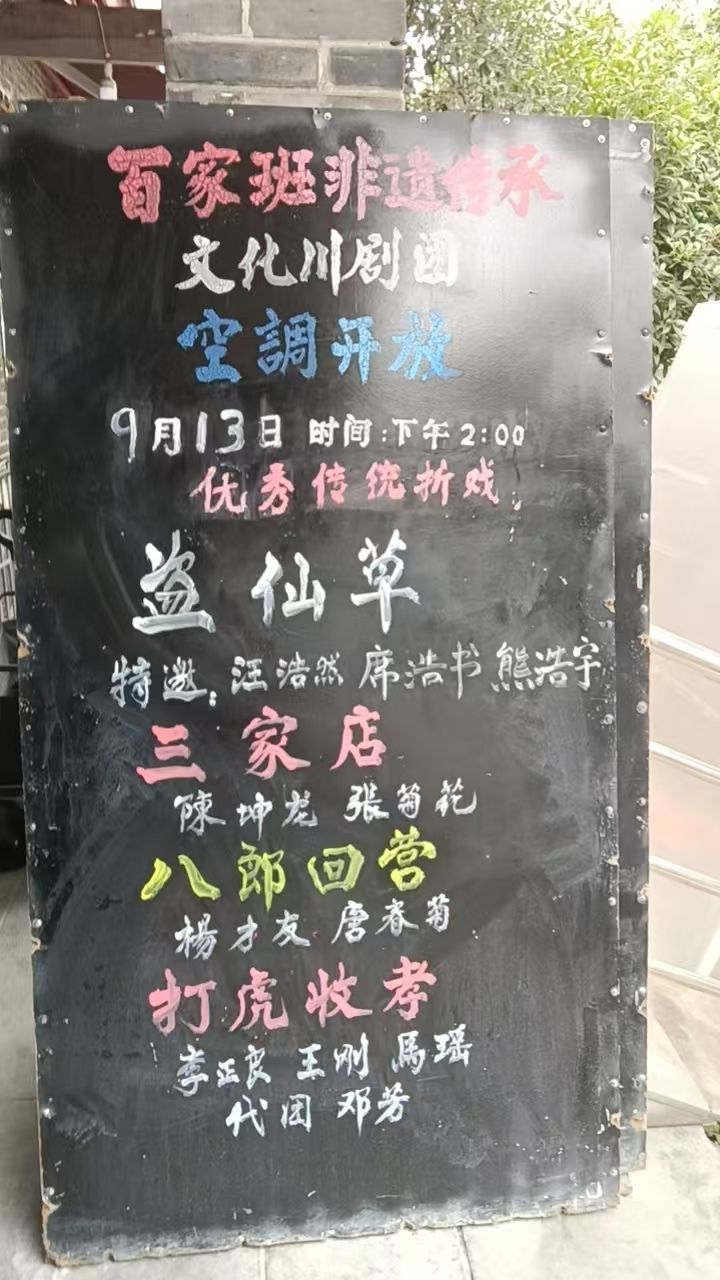 百家班非遗传承
文化川剧团
空調开放
9月13日 时间:下午2:00
优秀传统折戏
盗仙草
特邀:汪浩然 席浩书 熊浩宇
三家店
陳坤龙 张菊花
八郎回营
楊才友 唐春菊
打虎收孝
李正良 王刚 馬瑶
代团 邓芳